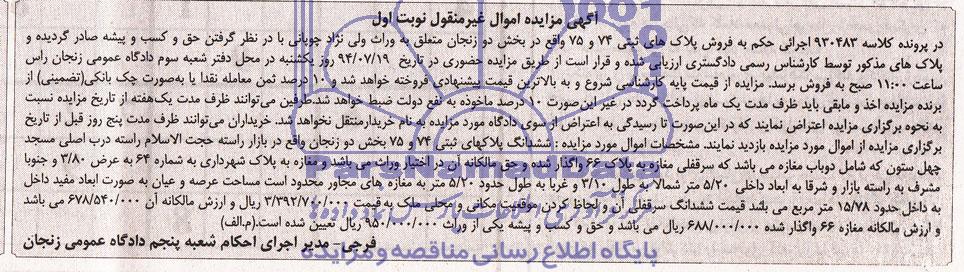 آگهی مزایده اموال غیرمنقول نوبت اول
در پرونده کلاسه ۹۳۰۴۸۳ اجرائی حکم به فروش پلاک های ثبتی ۷۴ و ۷۵ واقع در بخش دو زنجان متعلق به وراث ولی نژاد چوبانی با در نظر گرفتن حق و کسب و پیشه صادر گردیده و
پلاک های مذکور توسط کارشناس رسمی دادگستری ارزیابی شده و قرار است از طریق مزایده حضوری در تاریخ ۹۴/۰۷/۱۹ روز یکشنبه در محل دفتر شعبه سوم دادگاه عمومی زنجان راس
ساعت ۱۱:۰۰ صبح به فروش برسد. مزایده از قیمت پایه کارشناسی شروع و به بالاترین قیمت پیشنهادی فروخته خواهد شد و ۱۰ درصد ثمن معامله نقدا یا به‌صورت چک بانکی(تضمینی) از
برنده مزایده اخذ و مابقی باید ظرف مدت یک ماه پرداخت گردد در غیر این‌صورت ۱۰ درصد ماخوذه به نفع دولت ضبط خواهد شد.طرفین می‌توانند ظرف مدت یک‌هفته از تاریخ مزایده نسبت
به نحوه برگزاری مزایده اعتراض نمایند که در این‌صورت تا رسیدگی به اعتراض از سوی دادگاه مورد مزایده به نام خریدارمنتقل نخواهد شد. خریداران می‌توانند ظرف مدت پنج روز قبل از تاریخ
برگزاری مزایده از اموال مورد مزایده بازدید نمایند. مشخصات اموال مورد مزایده : ششدانگ پلاکهای ثبتی ۷۴ و ۷۵ بخش دو زنجان واقع در بازار راسته حجت الاسلام راسته درب اصلی مسجد
چهل ستون که شامل دوباب مغازه می باشد که سرقفلی مغازه به پلاک ۶۶ واگذار شده و حق مالکانه آن در اختیار وراث می باشد و مغازه به پلاک شهرداری به شماره ۶۴ به عرض ۳/۸۰ و جنوبا
مشرف به راسته بازار و شرقا به ابعاد داخلی ۵/۲۰ متر شمالا به طول ۳/۱۰ و غربا به طول حدود ۵/۲۰ متر به مغازه های مجاور محدود است مساحت عرصه و عیان به صورت ابعاد مفید داخل
به داخل حدود ۱۵/۷۸ متر مربع می باشد قیمت ششدانگ سرقفلی آن و لحاظ کردن موقعیت مکانی و محلی ملک به قیمت ۳/۳۹۲/۷۰۰/۰۰۰ ریال و ارزش مالکانه آن ۶۷۸/۵۴۰/۰۰۰
و ارزش مالکانه مغازه ۶۶ واگذار شده ۶۸۸/۰۰۰/۰۰۰ ریال می باشد و حق و کسب و پیشه یکی از وراث ۹۵۰/۰۰۰/۰۰۰ ریال تعیین شده است.(م.الف)
فرجی- مدیر اجرای احکام شعبه پنجم دادگاه عمومی زنجان
ParsNamadData
پایگاه اطلاع رسانی مناقصه و مزایده